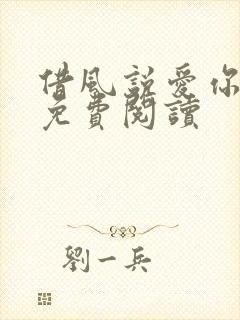 借風說愛你
免費閱讀
劉一兵